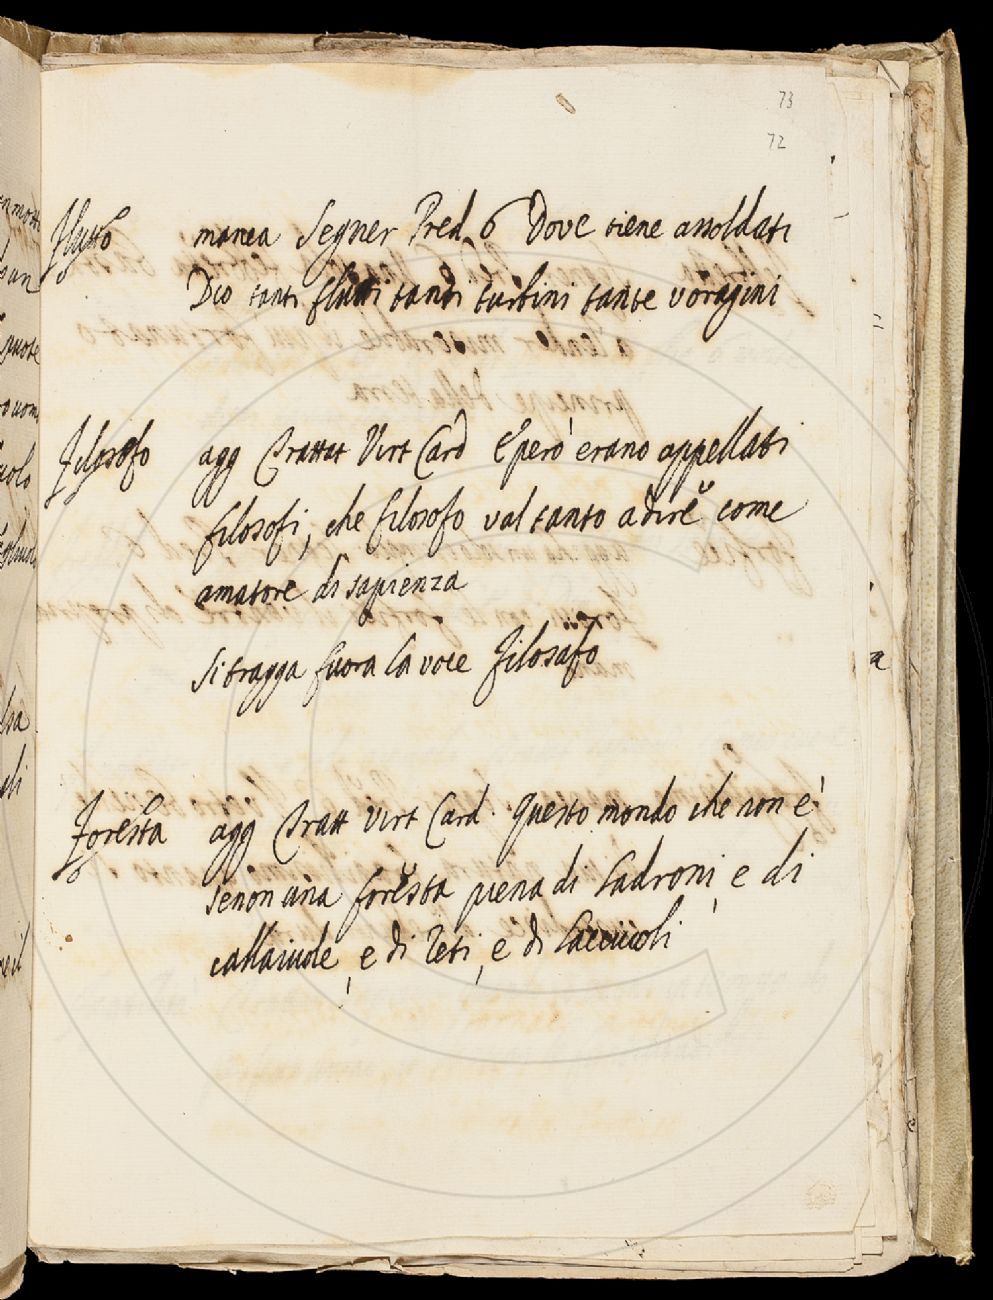 73
72
Flutto manca Segner Pred 6 Dove tiene assoldati
Dio tanti flutti tanti turbini tante voragini
Filosofo agg Trattat Virt Card E però erano appellati
filosofi, che filosofo val tanto a dire come
amatore di sapienza
Si tragga fuora la voce Filosafo
Foresta agg Tratt Virt Card. Questo mondo che non è
se non una foresta piena di Ladroni, e di
callaiuole, e di Reti, e di Lacciuoli